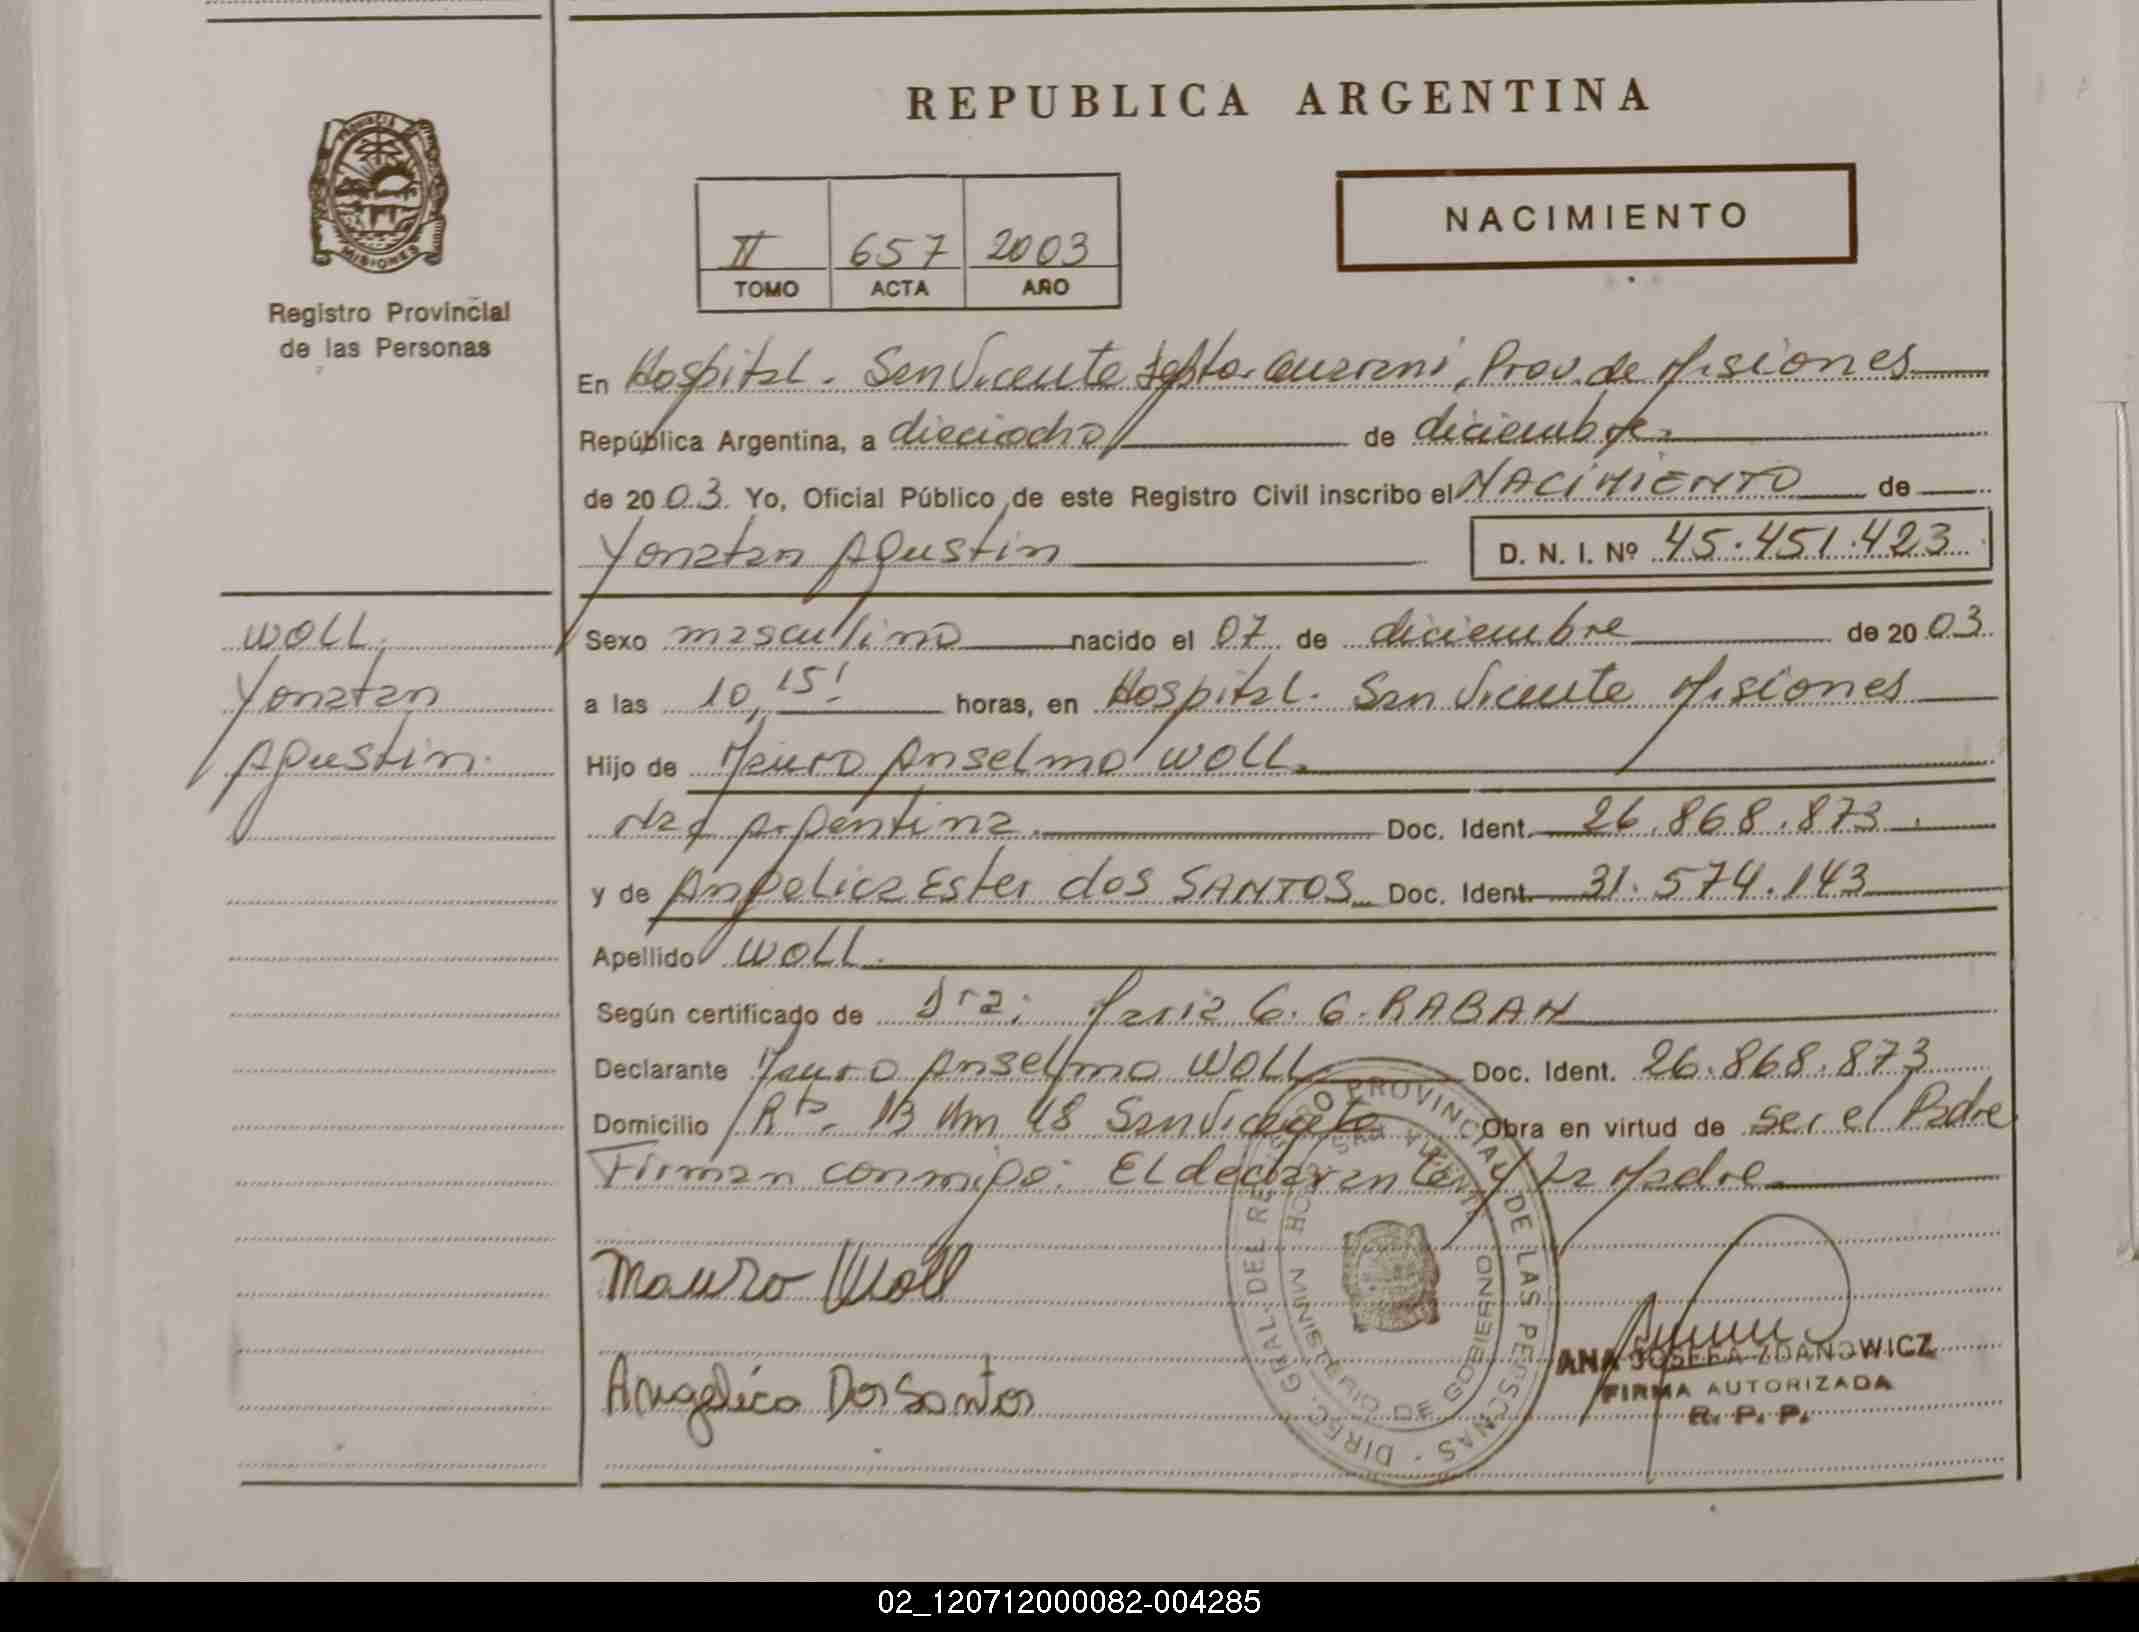 REPUBLICA ARGENTINA
PROVINCIA DE
MISIONES
Registro Provincial
de las Personas
II 657 2003
TOMO ACTA AÑO
NACIMIENTO
En Hospital. San Vicente Depto. Guarani, Prov. de Misiones
República Argentina, a dieciocho de diciembre.
de 2003. Yo, Oficial Público de este Registro Civil inscribo el NACIMIENTO de
Yonatan Agustin D. N. I. Nº 45.451.423
WOLL
Yonatan
Agustin.
Sexo masculino nacido el 07 de diciembre de 2003.
a las 10,15! horas, en Hospital. San Vicente Misiones
Hijo de Mauro Anselmo WOLL.
Nac. Argentina. Doc. Ident. 26.868.873.
y de Angelica Ester dos SANTOS Doc. Ident. 31.574.143
Apellido WOLL.
Según certificado de Dra: Maria G. G. RABAN
Declarante Mauro Anselmo WOLL Doc. Ident. 26.868.873
Domicilio Rta. 13 Km 48 San Vicente Obra en virtud de ser el Padre
Firman conmigo: El declarante y La Madre.
Mauro Woll
Angélica Dos Santos
DIREC. GRAL. DEL REGISTRO PROVINCIAL DE LAS PERSONAS
MINISTERIO DE GOBIERNO
ANA JOSEFA ZDANOWICZ
FIRMA AUTORIZADA
R. P. P.
02_120712000082-004285